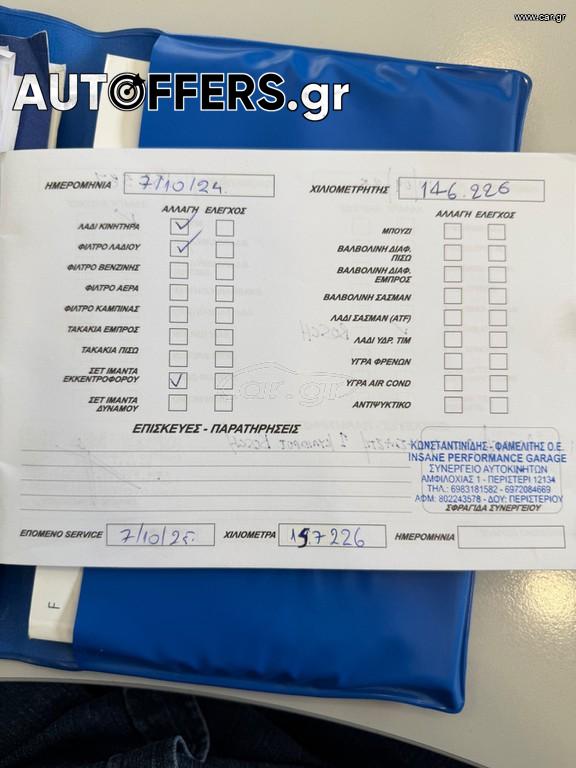 www.car.gr
AUTOFFERS.gr
ΗΜΕΡΟΜΗΝΙΑ 7/10/24. ΧΙΛΙΟΜΕΤΡΗΤΗΣ 146.226
ΑΛΛΑΓΗ ΕΛΕΓΧΟΣ
ΛΑΔΙ ΚΙΝΗΤΗΡΑ
ΦΙΛΤΡΟ ΛΑΔΙΟΥ
ΦΙΛΤΡΟ ΒΕΝΖΙΝΗΣ
ΦΙΛΤΡΟ ΑΕΡΑ
ΦΙΛΤΡΟ ΚΑΜΠΙΝΑΣ
ΤΑΚΑΚΙΑ ΕΜΠΡΟΣ
ΤΑΚΑΚΙΑ ΠΙΣΩ
ΣΕΤ ΙΜΑΝΤΑ
ΕΚΚΕΝΤΡΟΦΟΡΟΥ
ΣΕΤ ΙΜΑΝΤΑ
ΔΥΝΑΜΟΥ
ΑΛΛΑΓΗ ΕΛΕΓΧΟΣ
ΜΠΟΥΖΙ
ΒΑΛΒΟΛΙΝΗ ΔΙΑΦ.
ΠΙΣΩ
ΒΑΛΒΟΛΙΝΗ ΔΙΑΦ.
ΕΜΠΡΟΣ
ΒΑΛΒΟΛΙΝΗ ΣΑΣΜΑΝ
ΛΑΔΙ ΣΑΣΜΑΝ (ATF)
ΛΑΔΙ ΥΔΡ. ΤΙΜ
ΥΓΡΑ ΦΡΕΝΩΝ
ΥΓΡΑ AIR COND
ΑΝΤΙΨΥΚΤΙΚΟ
car.gr
ΕΠΙΣΚΕΥΕΣ - ΠΑΡΑΤΗΡΗΣΕΙΣ
ΚΩΝΣΤΑΝΤΙΝΙΔΗΣ - ΦΑΜΕΛΙΤΗΣ Ο.Ε.
INSANE PERFORMANCE GARAGE
ΣΥΝΕΡΓΕΙΟ ΑΥΤΟΚΙΝΗΤΩΝ
ΑΜΦΙΛΟΧΙΑΣ 1 - ΠΕΡΙΣΤΕΡΙ 12134
ΤΗΛ.: 6983181582 - 6972084669
ΑΦΜ: 802243578 - ΔΟΥ: ΠΕΡΙΣΤΕΡΙΟΥ
ΣΦΡΑΓΙΔΑ ΣΥΝΕΡΓΕΙΟΥ
ΕΠΟΜΕΝΟ SERVICE 7/10/25. ΧΙΛΙΟΜΕΤΡΑ 157226 ΗΜΕΡΟΜΗΝΙΑ
F